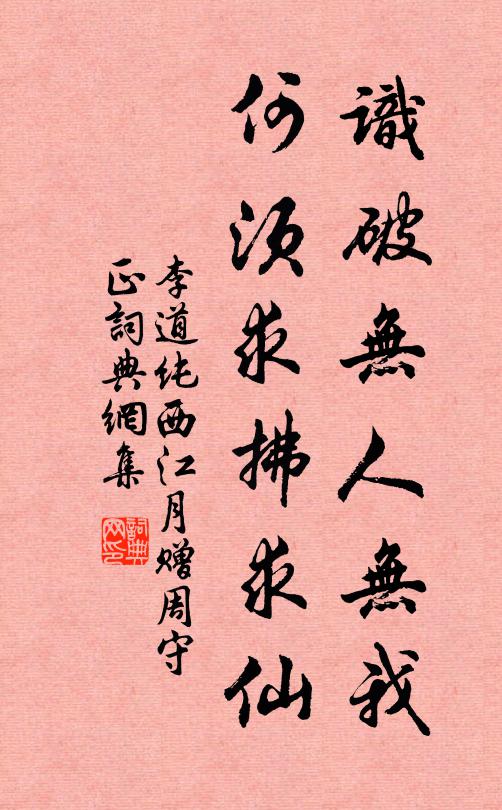 識破無人無我
何須求拂求仙
李道純西江月贈周守
正詞典網集
詞典
网印